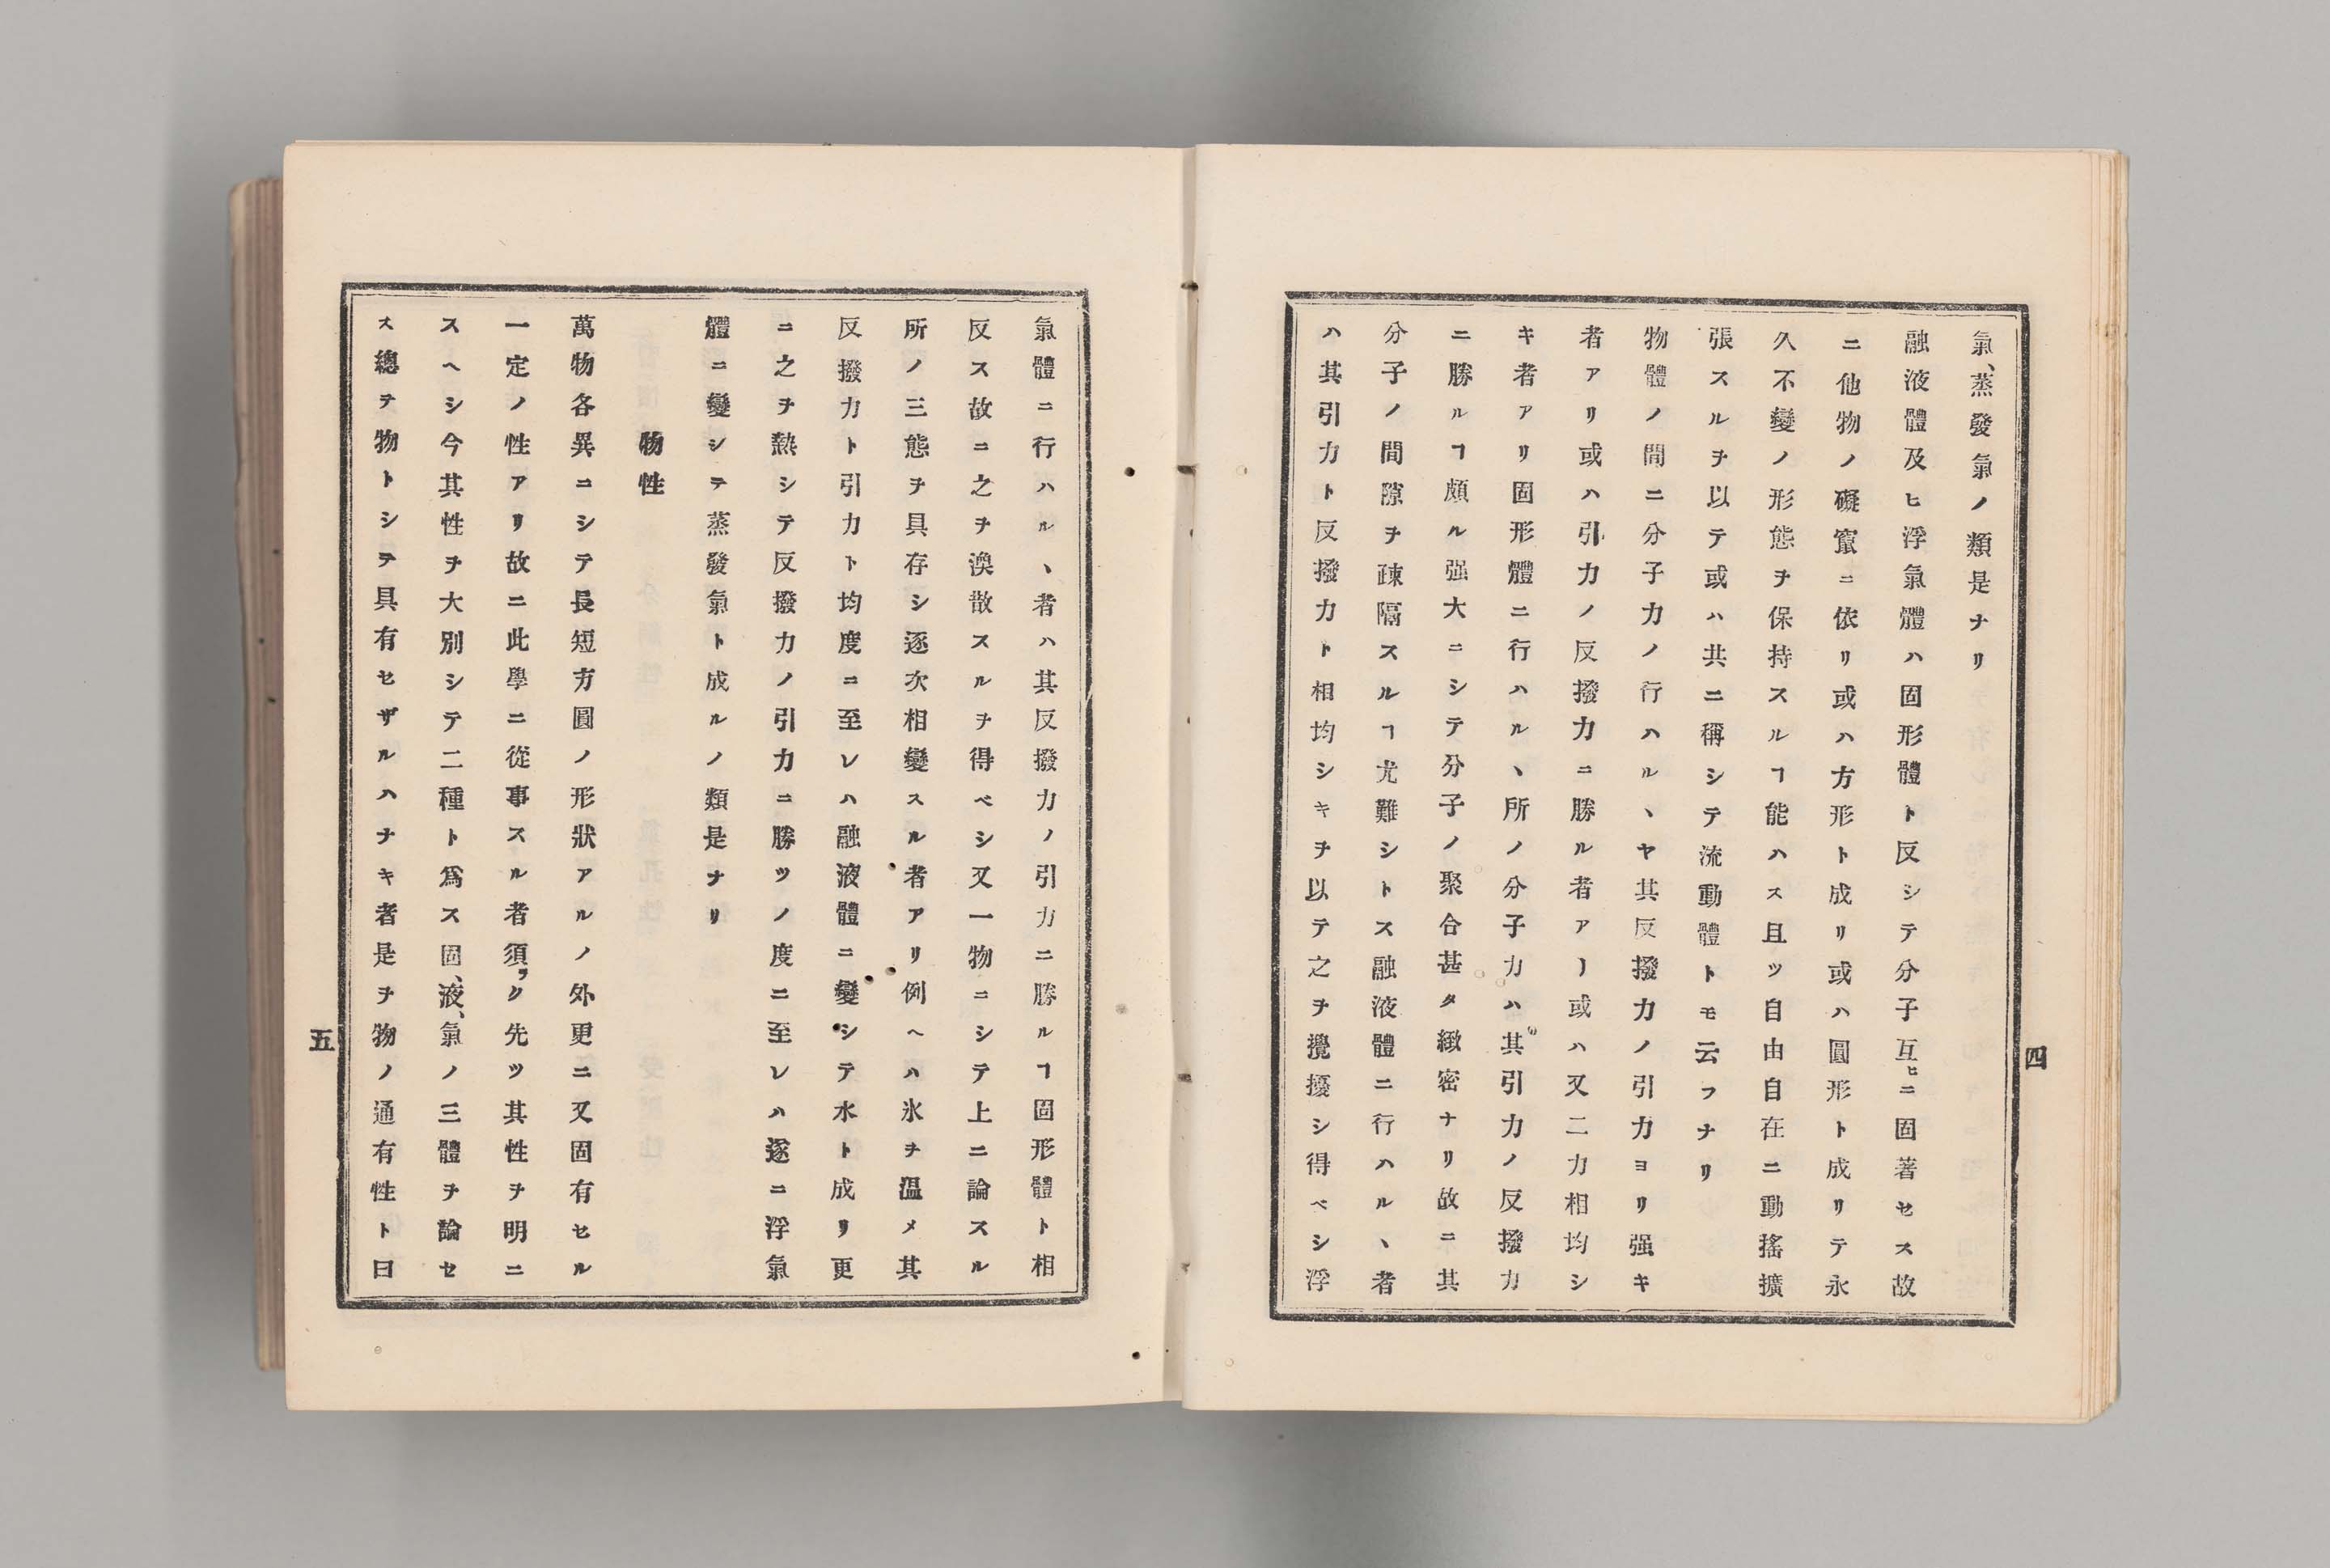 氣、蒸發氣ノ類是ナリ
融液體及ヒ浮氣體ハ固形體ト反シテ分子互ヒニ固著セス故
ニ他物ノ礙窒ニ依リ或ハ方形ト成リ或ハ圓形ト成リテ永
久不變ノ形態ヲ保持スルヿ能ハス且ツ自由自在ニ動搖擴
張スルヲ以テ或ハ共ニ稱シテ流動體トモ云フナリ
物體ノ間ニ分子力ノ行ハルヽヤ其反撥力ノ引力ヨリ强キ
者アリ或ハ引力ノ反撥力ニ勝ル者アリ或ハ又二力相均シ
キ者アリ固形體ニ行ハルヽ所ノ分子力ハ其引力ノ反撥力
ニ勝ルヿ頗ル强大ニシテ分子ノ聚合甚タ緻密ナリ故ニ其
分子ノ間隙ヲ疎隔スルヿ尤難シトス融液體ニ行ハルヽ者
ハ其引力ト反撥力ト相均シキヲ以テ之ヲ攪擾シ得ベシ浮
四
氣體ニ行ハルヽ者ハ其反撥力ノ引力ニ勝ルヿ固形體ト相
反ス故ニ之ヲ渙散スルヲ得ベシ又一物ニシテ上ニ論スル
所ノ三態ヲ具存シ逐次相變スル者アリ例ヘハ氷ヲ温メ其
反撥力ト引力ト均度ニ至レハ融液體ニ變シテ水ト成リ更
ニ之ヲ熱シテ反撥力ノ引力ニ勝ツノ度ニ至レハ逐ニ浮氣
體ニ變シテ蒸發氣ト成ルノ類是ナリ
物性
萬物各異ニシテ長短方圓ノ形狀アルノ外更ニ又固有セル
一定ノ性アリ故ニ此學ニ從事スル者須ラク先ツ其性ヲ明ニ
スヘシ今其性ヲ大別シテ二種ト爲ス固、液、氣ノ三體ヲ論セ
ス總テ物トシテ具有セザルハナキ者是ヲ物ノ通有性ト曰
五